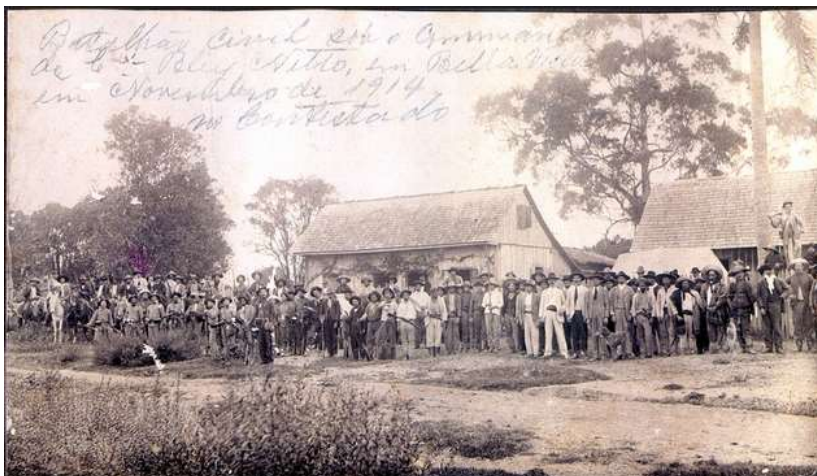 Batalhão civil sob o Command
de Cel Ruy Netto, em Bella Vista
em Novembro de 1914
no Contestado